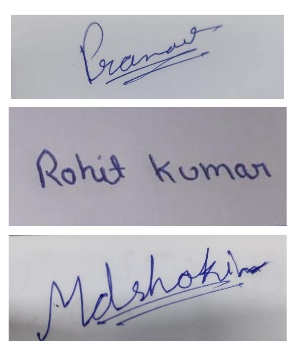 Pranav
Rohit Kumar
Mdshokin